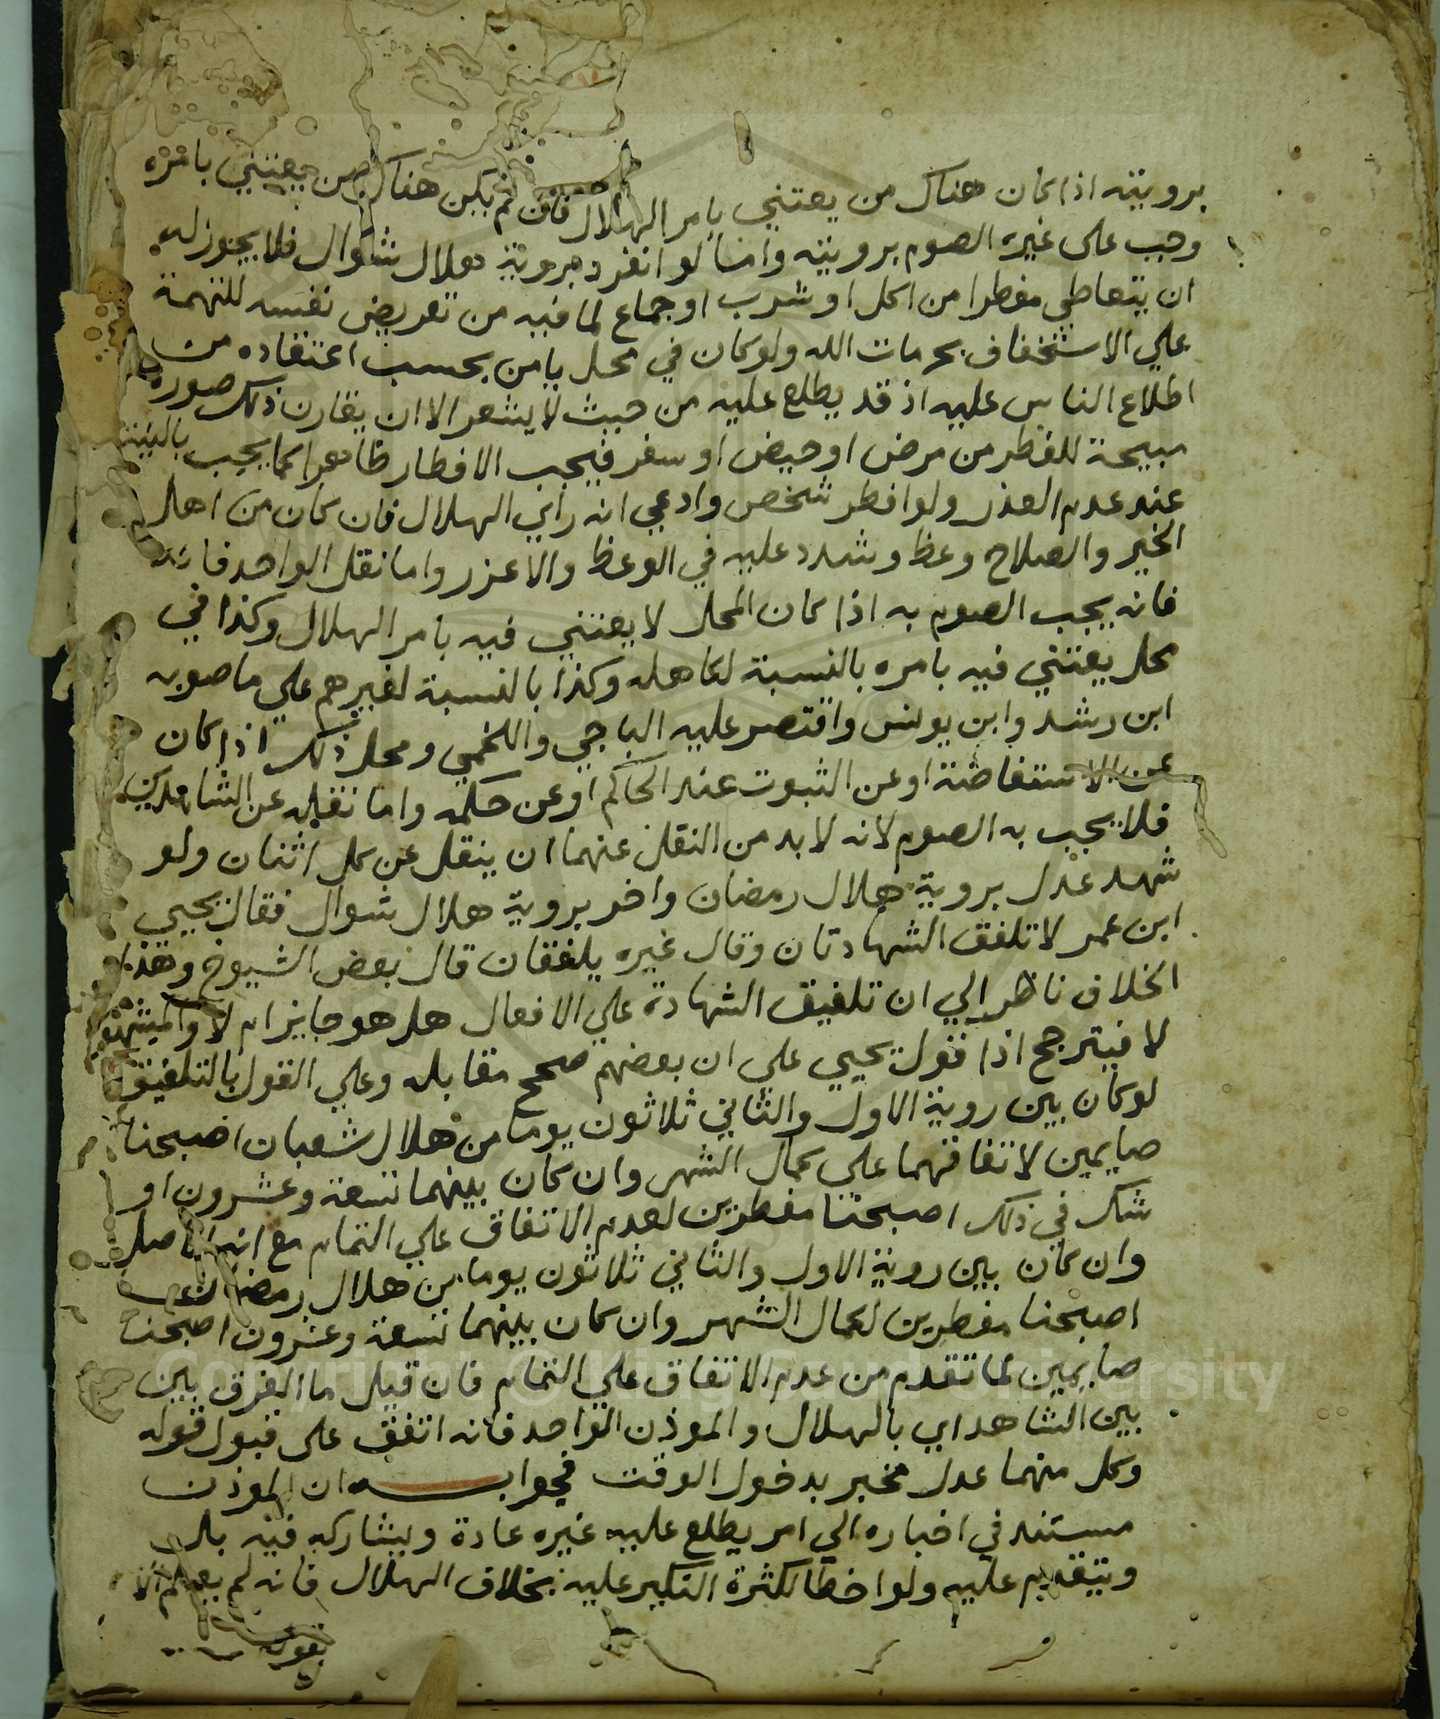 برويته اذا كان هناك من يعتني بامر الهلال فان لم يكن هناك من يعتني بامره
وجب على غيره الصوم برويته واما لو انفرد بروية هلال شوال فلا يجوز له
ان يتعاطى مفطرا من اكل او شرب او جماع لما فيه من تعريض نفسه للتهمة
علي الاستخفاف بحرمات الله ولو كان في محل يامن بحسب اعتقاده من
اطلاع الناس عليه اذ قد يطلع عليه من حيث لا يشعر الا ان يقارن ذلك صورة
مبيحة للفطر من مرض او حيض او سفر فيجب الافطار ظاهرا كما يجب بالنية
عند عدم العذر ولو افطر شخص وادعي انه راي الهلال فان كان من اهل
الخير والصلاح وعظ وشدد عليه في الوعظ والا عزر واما نقل الواحد فانه
فانه يجب الصوم به اذا كان المحل لا يعتني فيه بامر الهلال وكذا في
محل يعتني فيه بامره بالنسبة لكاهله وكذا بالنسبة لغيرهم علي ما صوبه
ابن رشد وابن يونس واقتصر عليه الباجي واللخمي ومحل ذلك اذا كان
عن الاستفاضة او عن الثبوت عند الحاكم او عن حكمه واما نقله عن الشاهدين
فلا يجب به الصوم لانه لا بد من النقل عنهما ان ينقل عن كل اثنان ولو
شهد عدل بروية هلال رمضان واخر بروية هلال شوال فقال يحيي
ابن عمر لا تلفق الشهادتان وقال غيره يلفقان قال بعض الشيوخ وهذا
الخلاف ناظر الي ان تلفيق الشهادة علي الافعال هل هو جايز ام لا والمشهور
لا فيترجح اذا قول يحيي علي ان بعضهم صحح مقابله وعلي القول بالتلفيق
لو كان بين روية الاول والثاني ثلاثون يوما من هلال شعبان اصبحنا
صايمين لاتفاقهما على كمال الشهر وان كان بينهما تسعة وعشرون او
شك في ذلك اصبحنا مفطرين لعدم الاتفاق علي التمام مع انه الاصل
وان كان بين روية الاول والثاني ثلاثون يوما من هلال رمضان
اصبحنا مفطرين لكمال الشهر وان كان بينهما تسعة وعشرون اصبحنا
صايمين لما تقدم من عدم الاتفاق علي التمام فان قيل ما الفرق بين
بين الشاهد اي بالهلال والموذن الواحد فانه اتفق على قبول قوله
وكل منهما عدل مخبر بدخول الوقت فجوابه ان الموذن
مستند في اخباره الي امر يطلع عليه غيره عادة ويشاركه فيه بل
ويتقدم عليه ولو اخطا لكثرة النكير عليه بخلاف الهلال فانه لم يعلم الا
بقوله